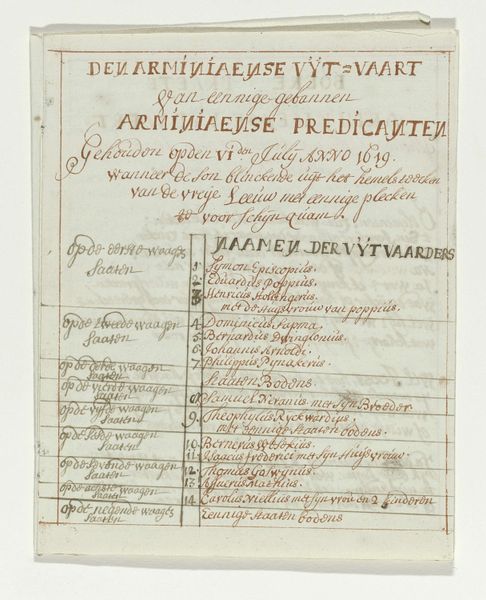 DEN ARMINIAENSE UŸT=VAART
van eennige gebannen
ARMINIAENSE PREDICANTEN
Gehouden op den VI den July ANNO 1619.
wanneer de son blinckende uyt het hemels teecken
van de vreije Leeuw met eennige plecken
te voor schyn quam.
NAAMEN DER UŸTVAARDERS
op de eerste waagen 1 Symon Episcopius.
Saaten 2 Eduardus Poppius.
3 Henricus Hollingerus.
met de Huysvrouw van poppius.
op de tweede waagen 4. Dominicus Sapma.
Saaten 5. Bernardus Dwinglonius.
6. Johannis Arnoldi.
op de derde waagen 7. Philippus Pynakerus.
Saaten Staaten Bodens.
op de vierde waagen 8. Samuel Neranus met syn Broeder
Saaten
op de vyfde waagen 9. Theophilus Ryckwardius.
Saaten met eennige Staaten bodens.
op de sesde waagen 10. Bernerus
Saaten 11. Isaacus frederici met syn Huysvrouw.
op de sevende waagen 12. Thomas Goswynius.
Saaten 13. Assuerus Mathius.
op de agtste waagen 14. Carolus Niellius met syn vrou en 2 kinderen
Saaten
op de negende waagen Eennige Staaten bodens
Saaten